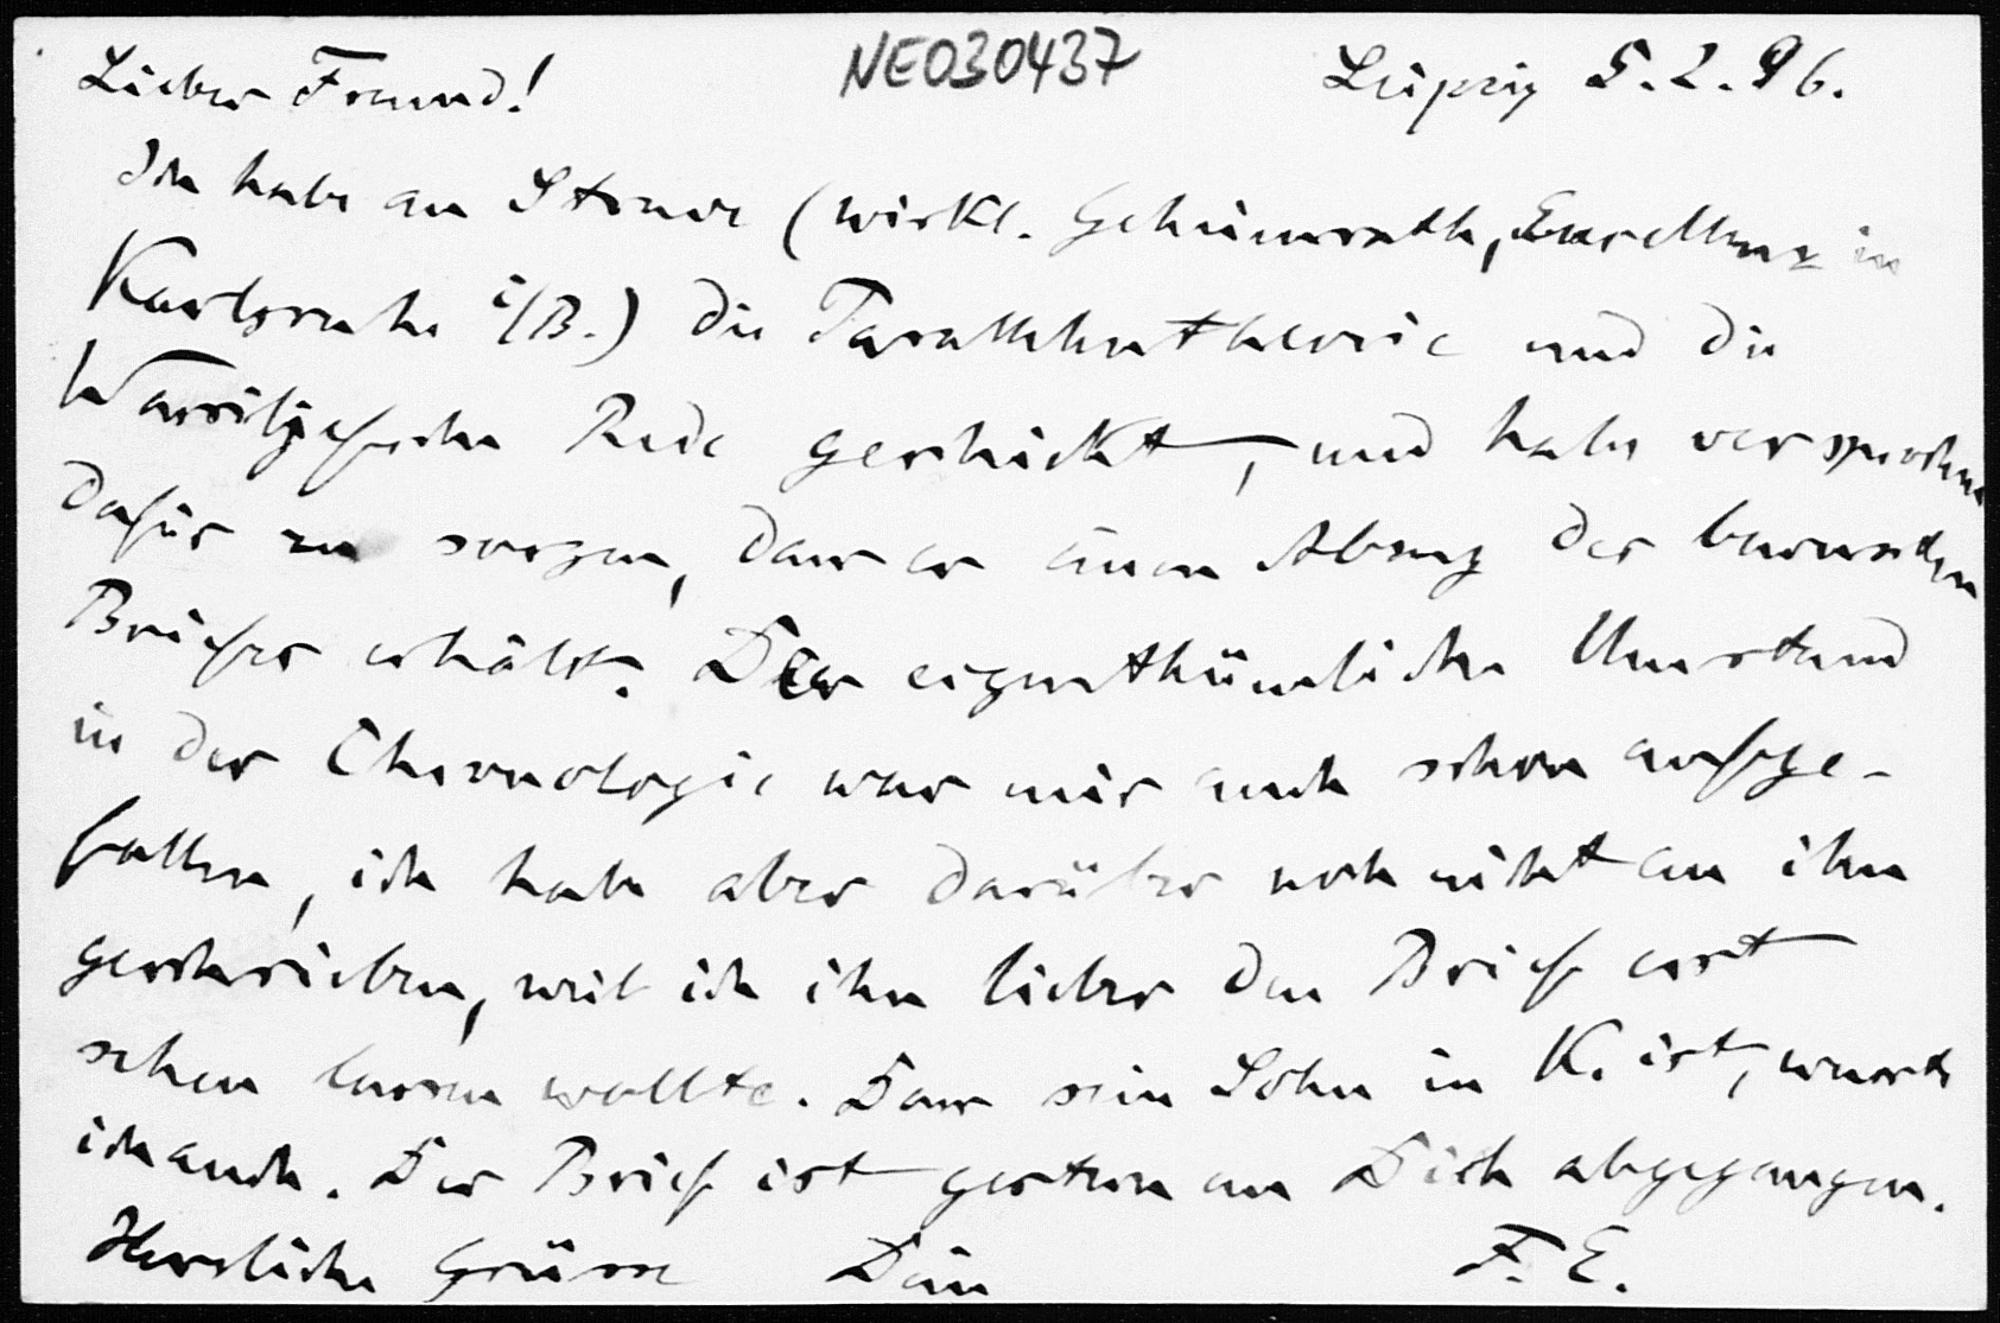 NE030437
Lieber Freund! Leipzig 5.2.96.
Ich habe an Struve (wirkl. Geheimrath, Excellenz in
Karlsruhe i/B.) die Parallelentheorie und die
Wassiljefsche Rede geschickt, und habe versprochen
dafür zu sorgen, dass er einen Abzug des bewussten
Briefes erhält. Der eigenthümliche Umstand
in der Chronologie war mir auch schon aufge-
fallen, ich habe aber darüber noch nicht an ihn
geschrieben, weil ich ihn lieber den Brief erst
sehen lassen wollte. Dass sein Sohn in K. ist, wusste
ich auch. Der Brief ist gestern an Dich abgegangen.
Herzliche Grüsse Dein F. E.